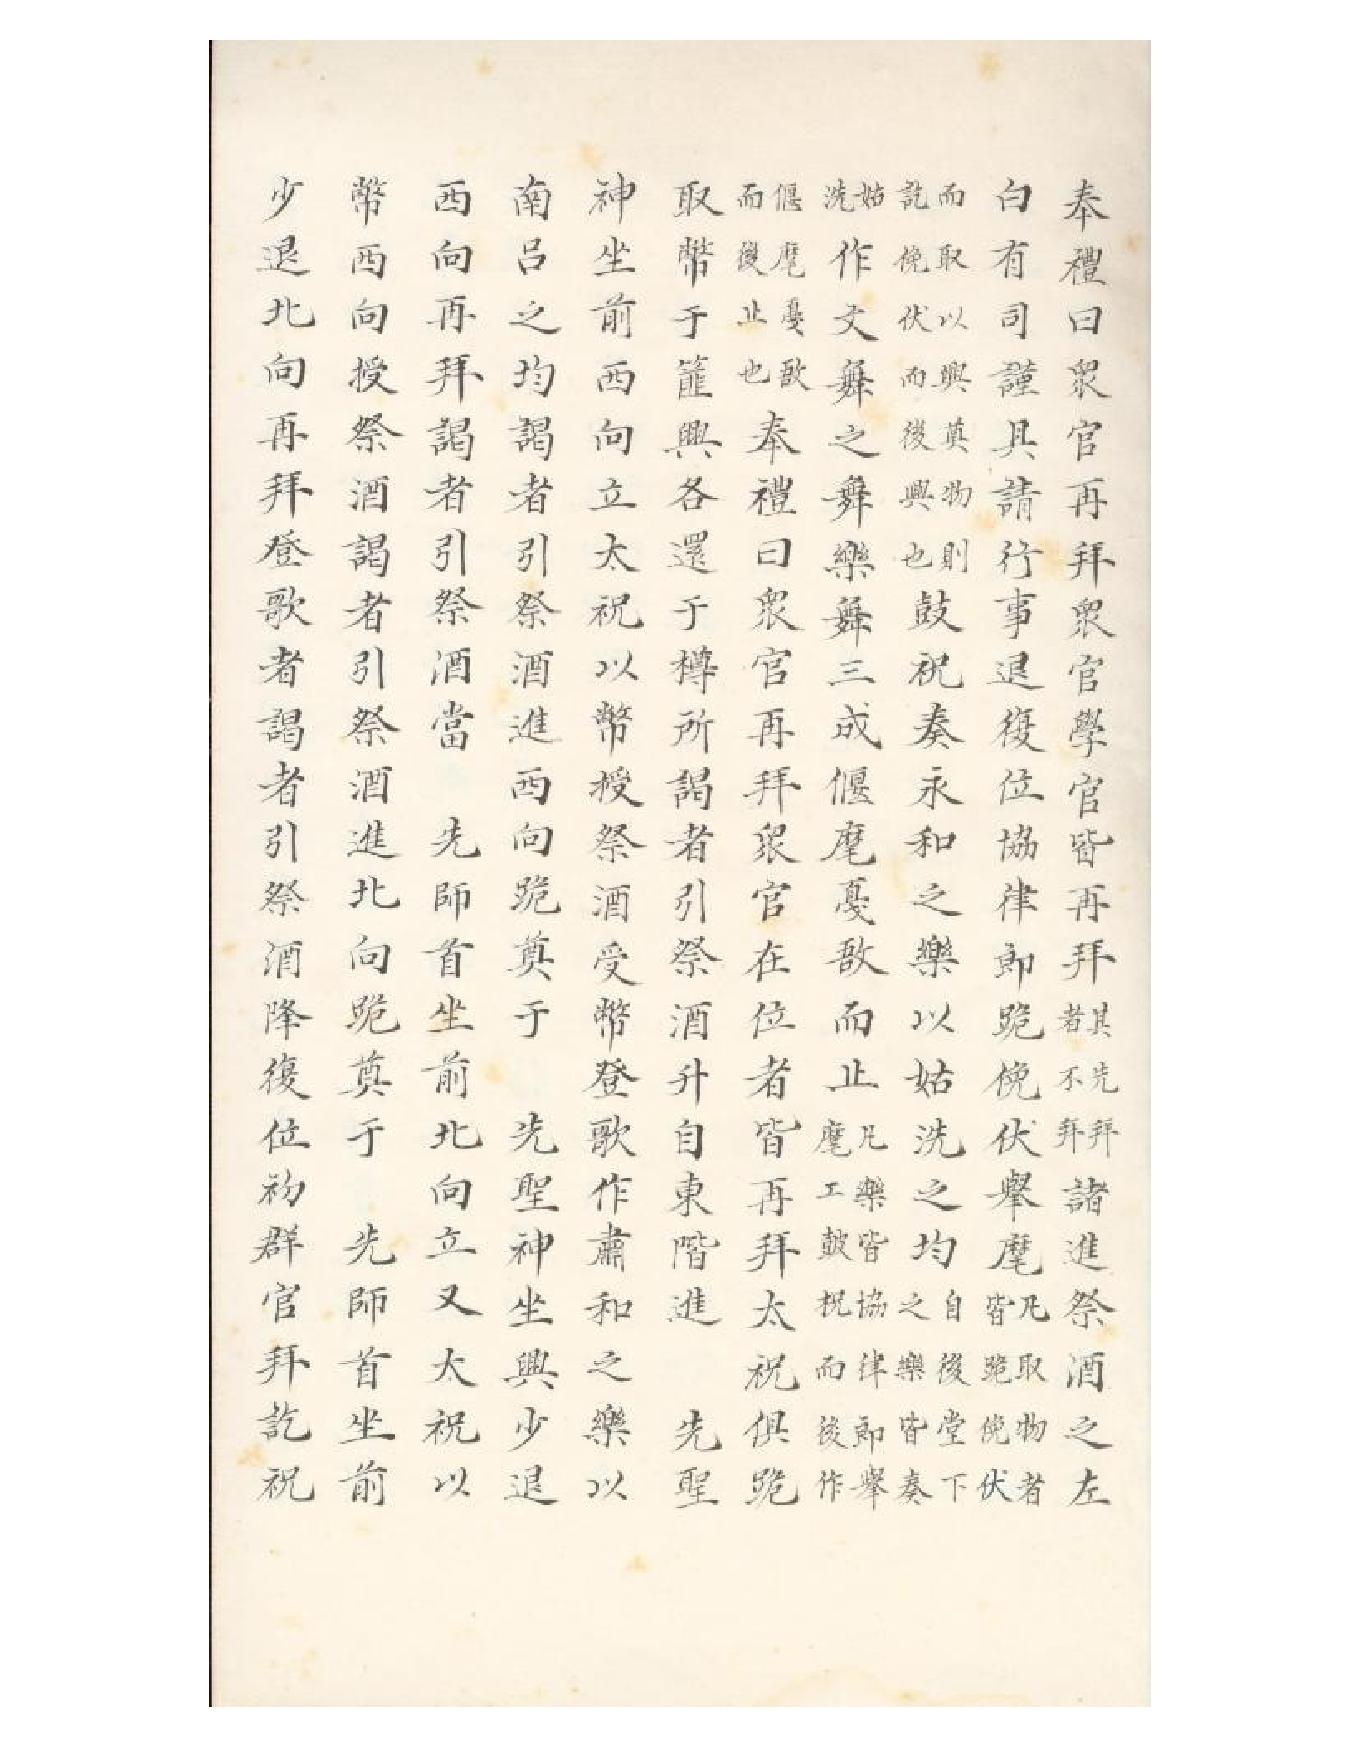 奉禮曰衆官再拜衆官學官皆再拜其先拜者不拜諸進祭酒之左
白有司謹具請行事退復位協律郎跪俛伏舉麾凡取物者皆跪俛伏
而取以興奠物則訖俛伏而後興也鼓柷奏永和之樂以姑洗之均自後堂下之樂皆奏
姑洗作文舞之舞樂舞三成偃麾戞敔而止凡樂皆協律郎舉麾工鼓柷而後作
偃麾戞敔而後止也奉禮曰衆官再拜衆官在位者皆再拜太祝俱跪
取幣于篚興各還于樽所謁者引祭酒升自東階進　先聖
神坐前西向立太祝以幣授祭酒受幣登歌作肅和之樂以
南呂之均謁者引祭酒進西向跪奠于　先聖神坐興少退
西向再拜謁者引祭酒當　先師首坐前北向立又太祝以
幣西向授祭酒謁者引祭酒進北向跪奠于　先師首坐前
少退北向再拜登歌者謁者引祭酒降復位初群官拜訖祝